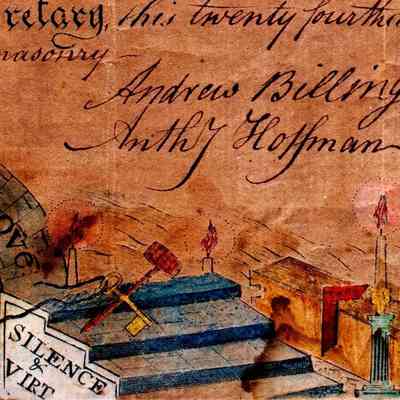 retary, this twenty fourth
masonry
Andrew Billing
Anthy Hoffman
OVE
SILENCE
&
VIRT